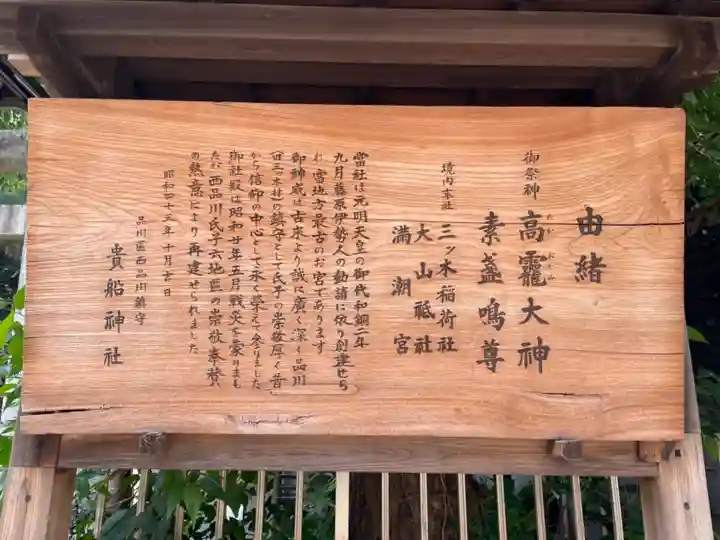 由緒
御祭神
高龗大神
たか おかみ
素盞鳴尊
境内末社
三ッ木稲荷社
大山祗社
満潮宮
當社は元明天皇の御代和銅二年
九月藤原伊勢人の勧請に依り創建せら
れ當地方最古のお宮であります
御神威は古来より誠に廣く深く品川
の鎮守として氏子の崇敬厚く昔
から信仰の中心として永く栄えて参りました
御社殿は昭和廿年五月戦災を蒙りまし
たが西品川氏子云地区の崇敬奉賛
の熱意により再建せられました
昭和四十三年十月吉日
品川區西品川鎮守
貴船神社